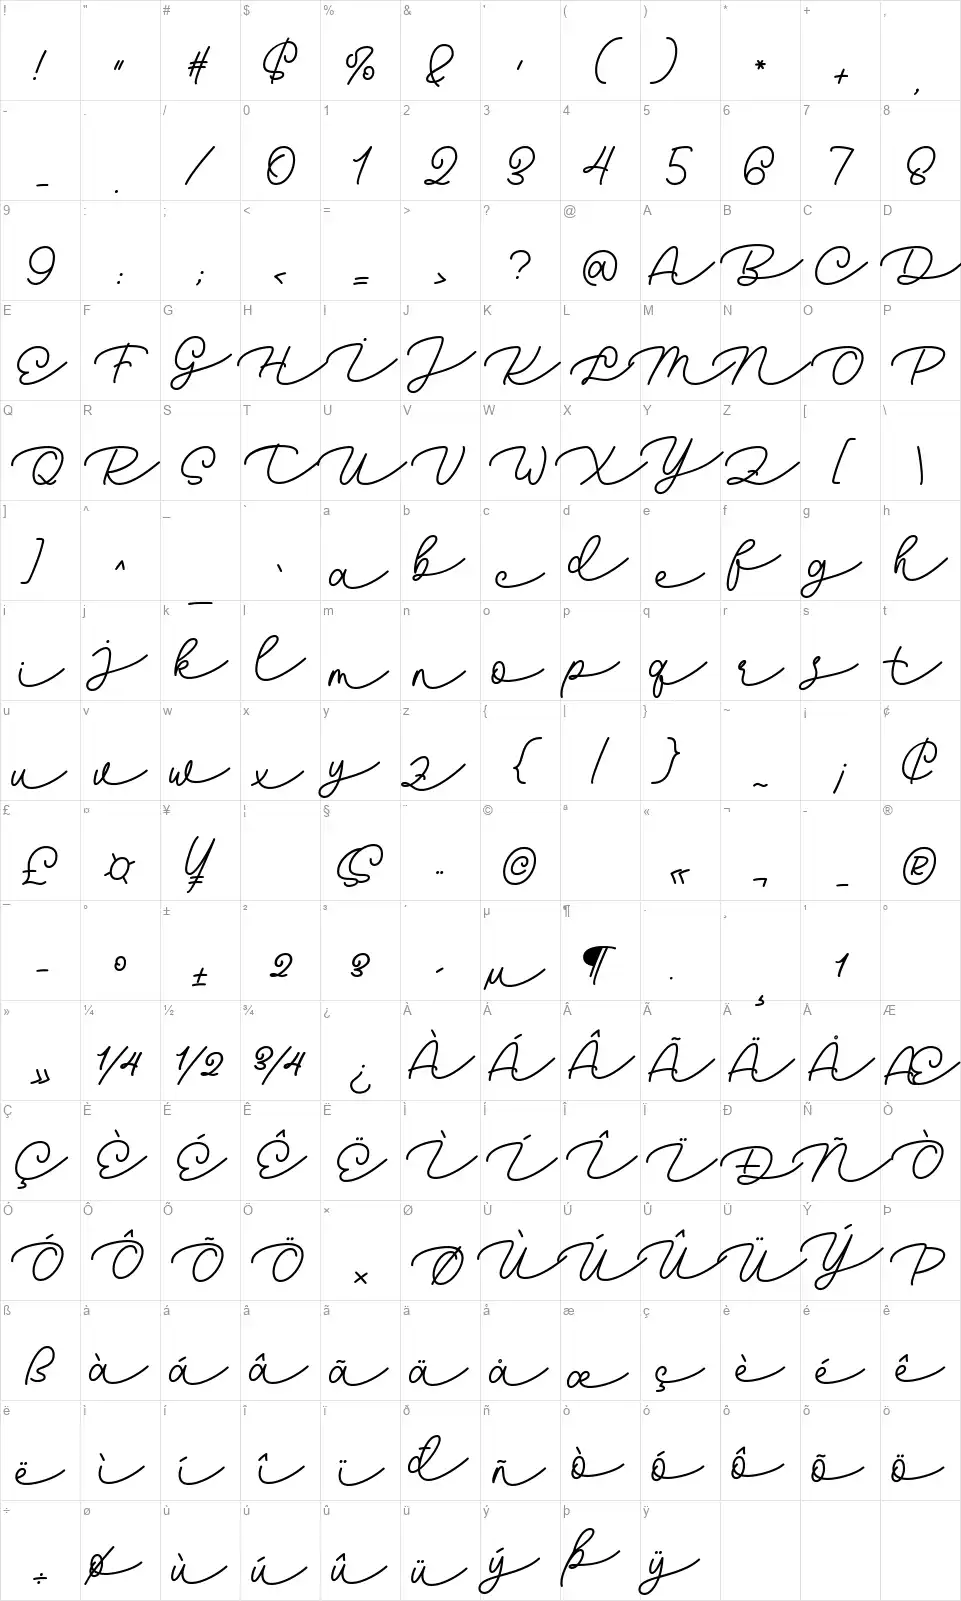 ! " # $ % & ' ( ) * + ,
! " # $ % & ' ( ) * + ,
- . / 0 1 2 3 4 5 6 7 8
- . / 0 1 2 3 4 5 6 7 8
9 : ; < = > ? @ A B C D
9 : ; < = > ? @ A B C D
E F G H I J K L M N O P
E F G H I J K L M N O P
Q R S T U V W X Y Z [ \
Q R S T U V W X Y Z [ \
] ^ _ ` a b c d e f g h
] ^ _ ` a b c d e f g h
i j k l m n o p q r s t
i j k l m n o p q r s t
u v w x y z { | } ~ ¡ ¢
u v w x y z { | } ~ ¡ ¢
£ ¤ ¥ ¦ § ¨ © ª « ¬ - ®
£ ¤ ¥ § ¨ © « ¬ - ®
¯ ° ± ² ³ ´ µ ¶ · ¸ ¹ º
¯ ° ± ² ³ ´ µ ¶ · ¸ ¹
» ¼ ½ ¾ ¿ À Á Â Ã Ä Å Æ
» ¼ ½ ¾ ¿ À Á Â Ã Ä Å Æ
Ç È É Ê Ë Ì Í Î Ï Ð Ñ Ò
Ç È É Ê Ë Ì Í Î Ï Ð Ñ Ò
Ó Ô Õ Ö × Ø Ù Ú Û Ü Ý Þ
Ó Ô Õ Ö × Ø Ù Ú Û Ü Ý Þ
ß à á â ã ä å æ ç è é ê
ß à á â ã ä å æ ç è é ê
ë ì í î ï ð ñ ò ó ô õ ö
ë ì í î ï ð ñ ò ó ô õ ö
÷ ø ù ú û ü ý þ ÿ
÷ ø ù ú û ü ý þ ÿ